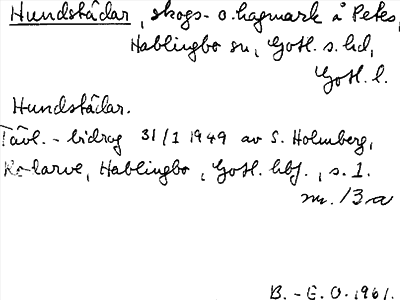 Hundstädar, skogs- o. hagmark å Petes,
Hablingbo sn, Gotl. s. hd,
Gotl. l.
Hundstädar.
Tävl.-bidrag 31/1 1949 av S. Holmberg,
Hablingbo, Gotl. hbf., s. 1.
nr. 13 a
B.-E. O. 1961.